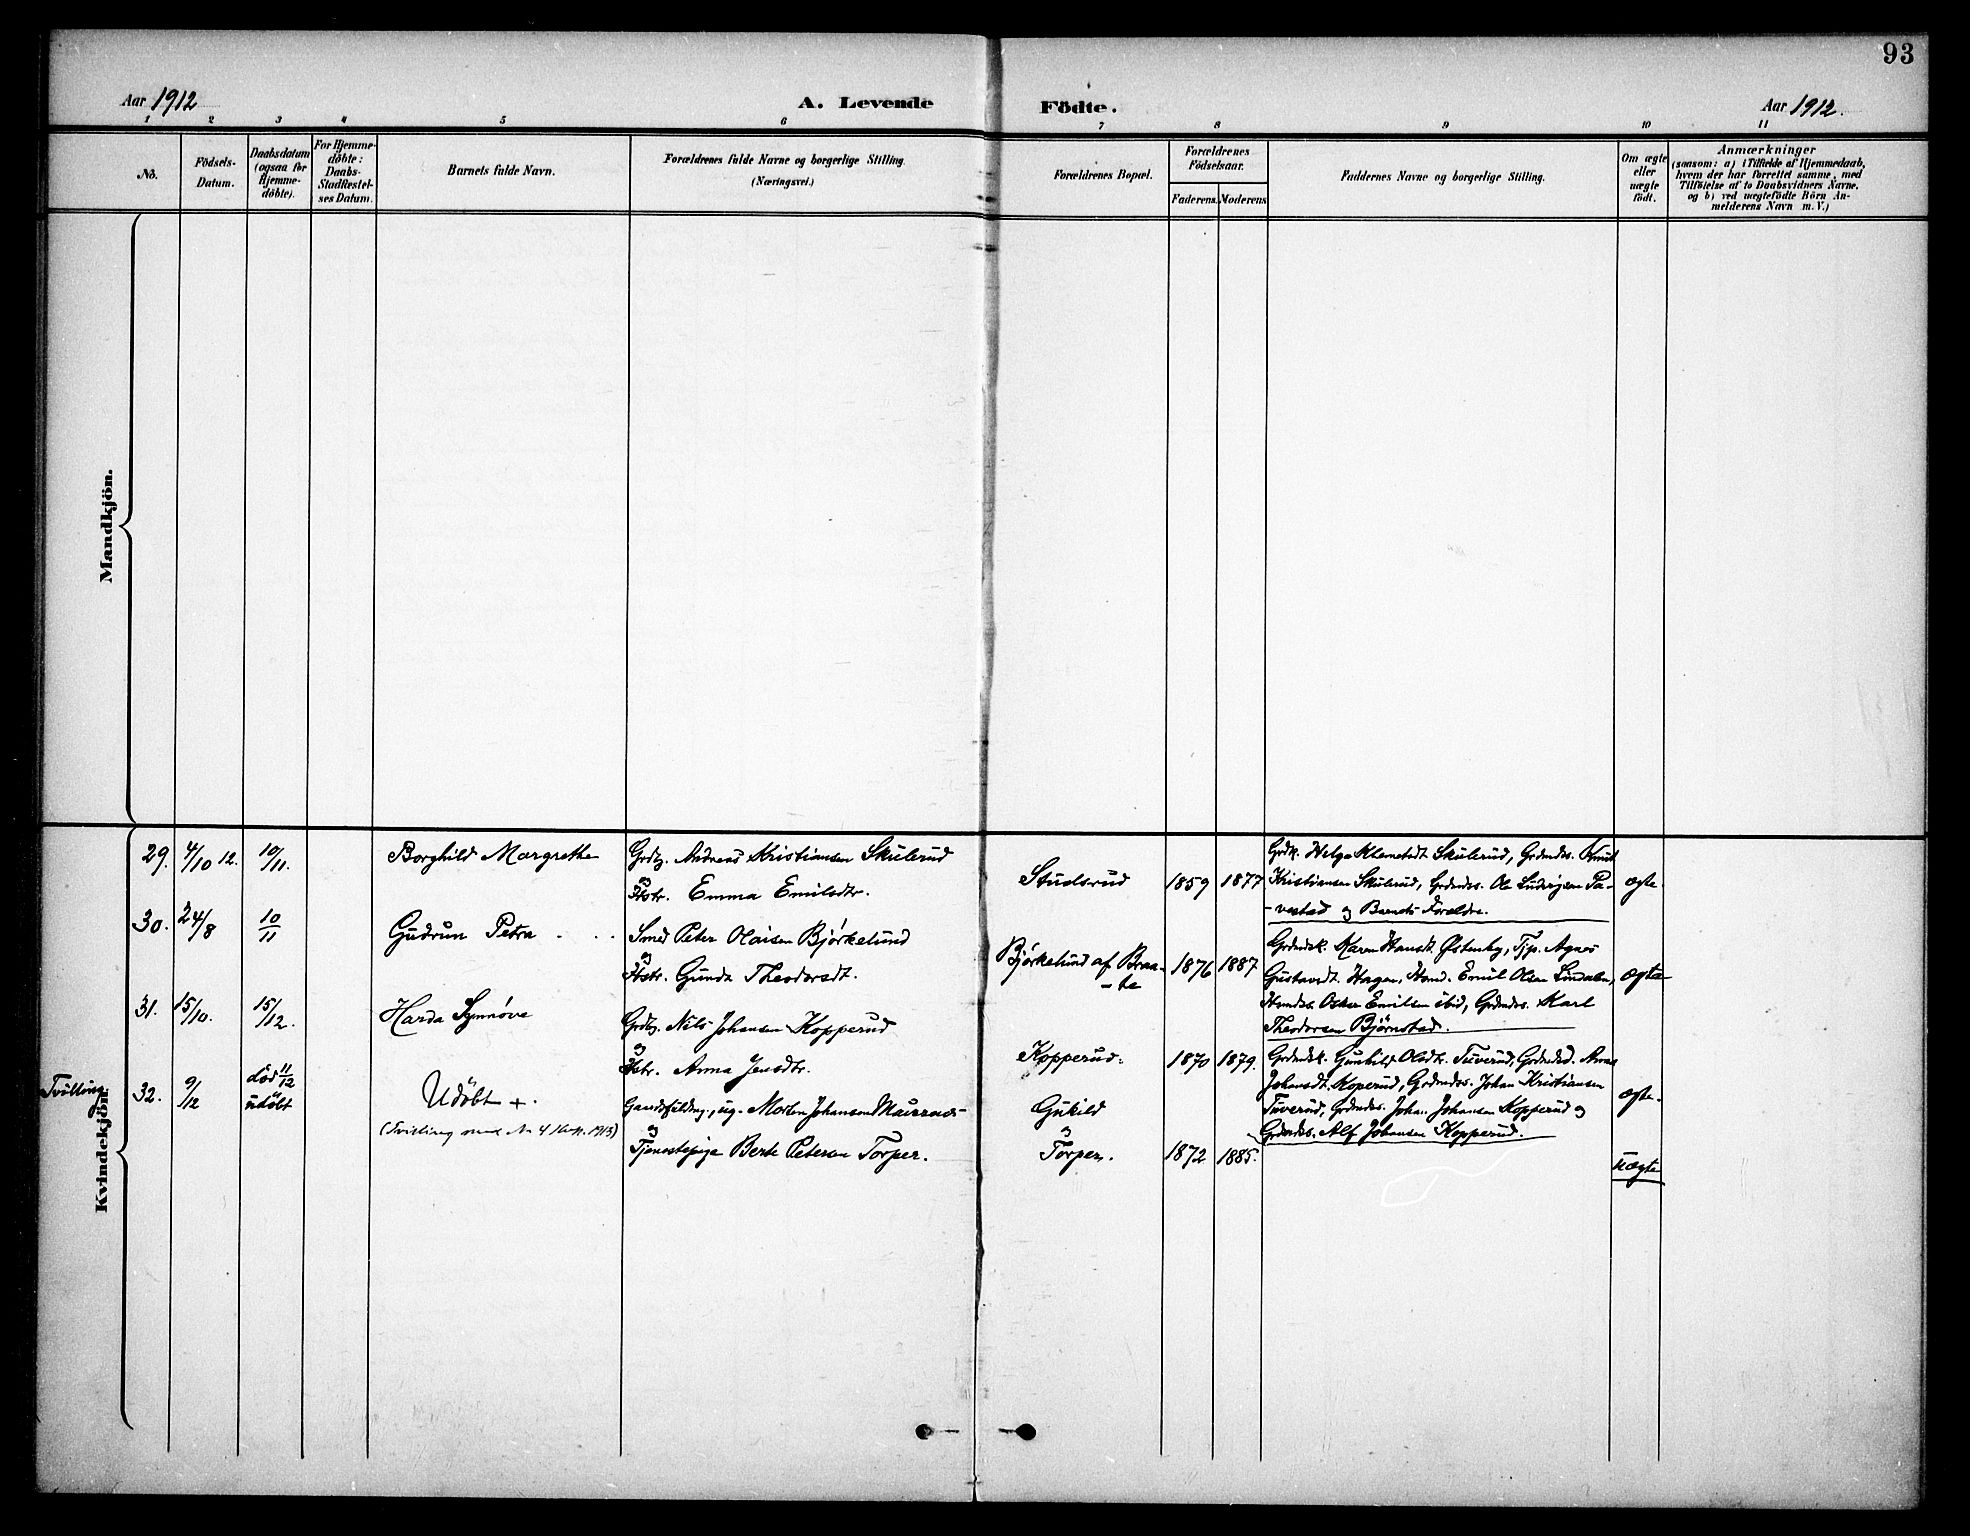 93
Aar 1912
A. Levende
Födte.
Aar 1912.
1 2 3 4 5 6 7 8 9 10 11
No.
Födsels-
Datum.
Daabsdatum
(ogsaa for
Hjemme-
döbte).
For Hjemme-
döbte:
Daabs-
Stadfestel-
ses Datum.
Barnets fulde Navn.
Forældrenes fulde Navne og borgerlige Stilling.
(Næringsvei.)
Forældrenes Bopæl.
Forældrenes
Födselsaar.
Faderens. Moderens
Faddernes Navne og borgerlige Stilling.
Om ægte
eller
uægte
födt.
Anmærkninger
(saasom: a) i Tilfælde af Hjemmedaab,
hvem der har forrettet samme, med
Tilföielse af to Daabsvidners Navne,
og b) ved uægtefödte Börn An-
melderens Navn m. V.)
Mandkjön.
Kvindekjön.
29. 4/10 12. 10/11. Borghild Margrethe
Grdbr. Andreas Kristiansen Skulerud
og
Hstr. Emma Emilsdtr.
Studsrud 1859 1877
Grdk. Helga Klemetsdt Skulerud, Grdmds. Knut
Kristiansen Skulerud, Grdmds. Ole Ludvigsen Pa-
-vestad og Barnets Forældre.
ægte
30. 24/8 10/11 Gudrun Petra
Smed Peter Olaisen Bjørkelund
og
Hstr. Gunda Theodorsdt.
Bjørkelund af Braa-
-te
1876 1887
Grdmdsk. Maren Hansdt. Østenby, Tjp. Agnes
Gustavsdt. Hagen, Hsmd. Emil Olsen
Hsmds. Oskar Emilsen ibid, Grdmds. Karl
Theodorsen Bjørnstad.
ægte
31. 15/10. 15/12. Harda Synnøve
Grdbr. Nils Johansen Kopperud
og
Hstr. Anna Jensdtr.
Kopperud. 1870 1879.
Grdmdsk. Gunhild Olsdtr. Tuverud, Grdmdsd. Anna
Johansdt. Koperud, Grdmds. Johan Kristiansen
Tuverud, Grdmds. Joh. Johansen Kopperud og
Grdmds. Alf Johansen Kopperud.
ægte.
Tvilling. 32. 9/12 död 11/12
udöbt
Udöbt +.
(Tvilling med No 4 1913)
ug. Morten Johansen
og
Tjenestepige Berte Petersen Torper.
Gukild
og
Torper. 1872 1885.
uægte